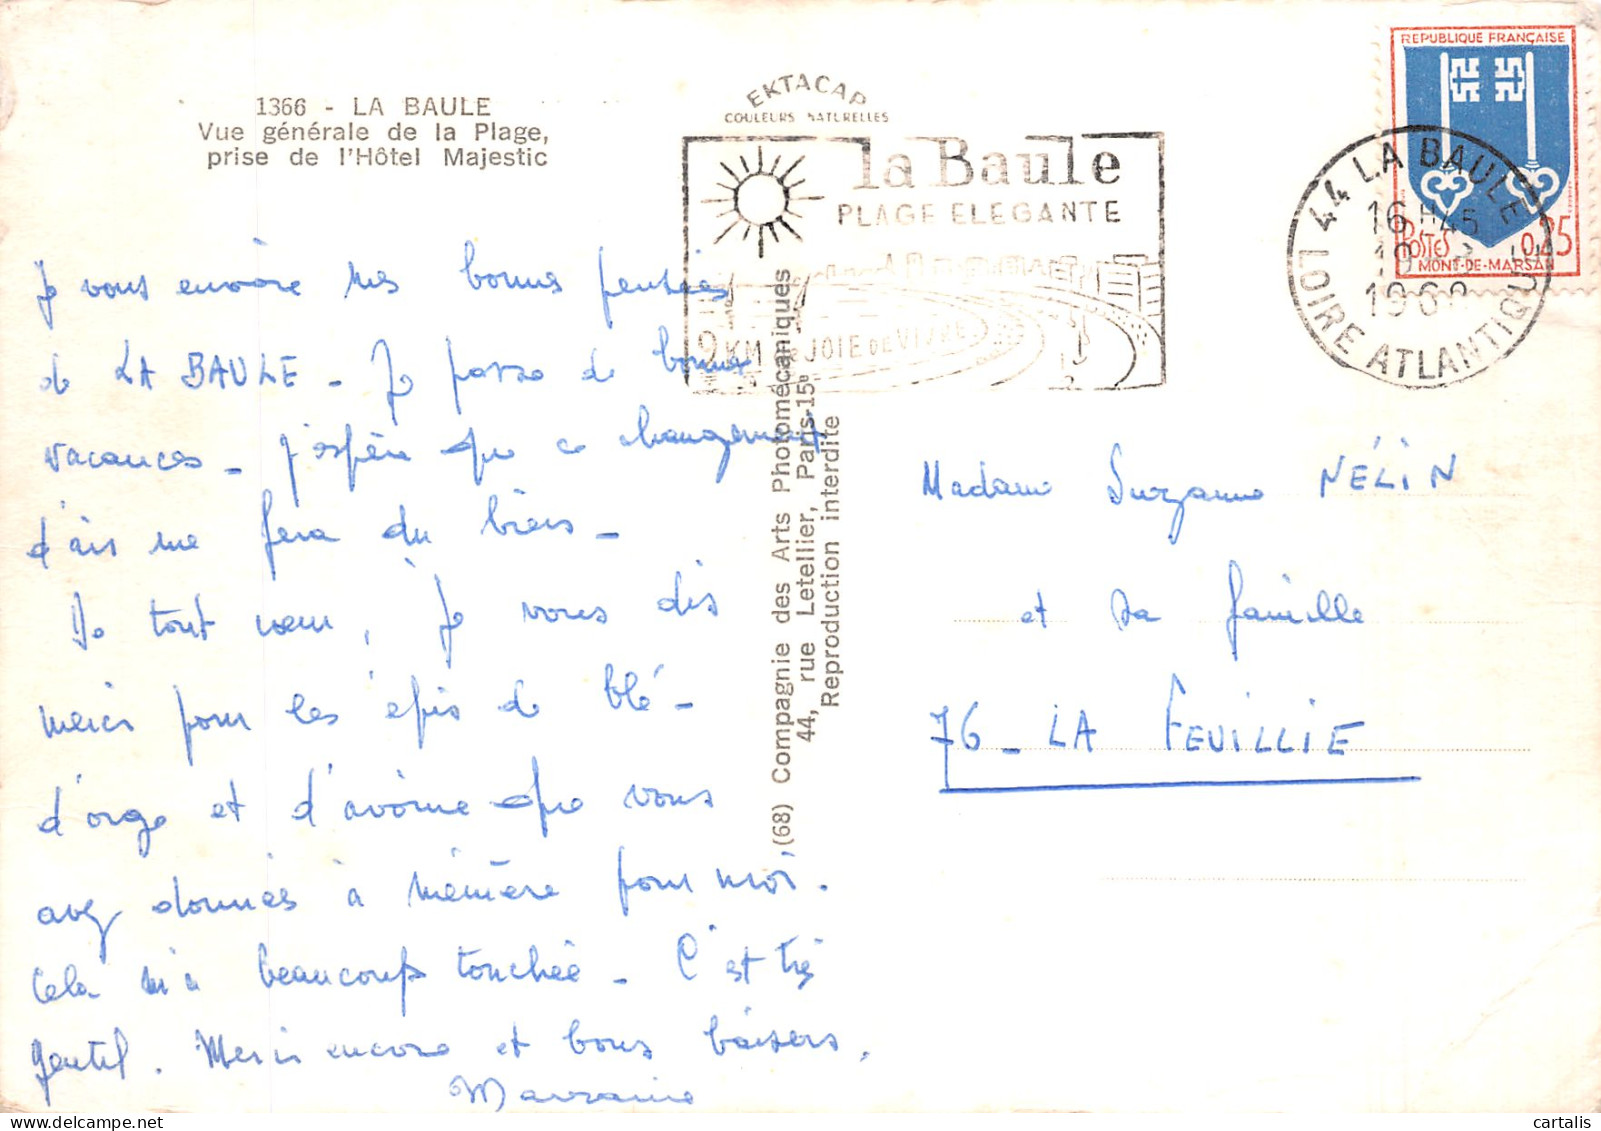 1366 - LA BAULE
Vue générale de la Plage,
prise de l'Hôtel Majestic
EKTACAP
COULEURS NATURELLES
la Baule
PLAGE ELEGANTE
9 KM DE JOIE DE VIVRE
REPUBLIQUE FRANÇAISE
POSTES 0,25
MONT-DE-MARSAN
44 LA BAULE
16 H 45
19
196
LOIRE ATLANTIQUE
Je vous envoie mes bonnes pensées
de LA BAULE - Je passe de bonnes
vacances - J'espère que ce changement
d'air me fera du bien -
De tout cœur, je vous dis
merci pour les épis de blé -
d'orge et d'avoine que vous
avez donnés à mémère pour moi.
Cela m'a beaucoup touchée - C'est très
gentil. Merci encore et bons baisers.
(68) Compagnie des Arts Photomécaniques
44, rue Letellier, Paris-15e
Reproduction interdite
Madame Suzanne NÉLIN
et sa famille
76 - LA FEUILLIE
cartalis